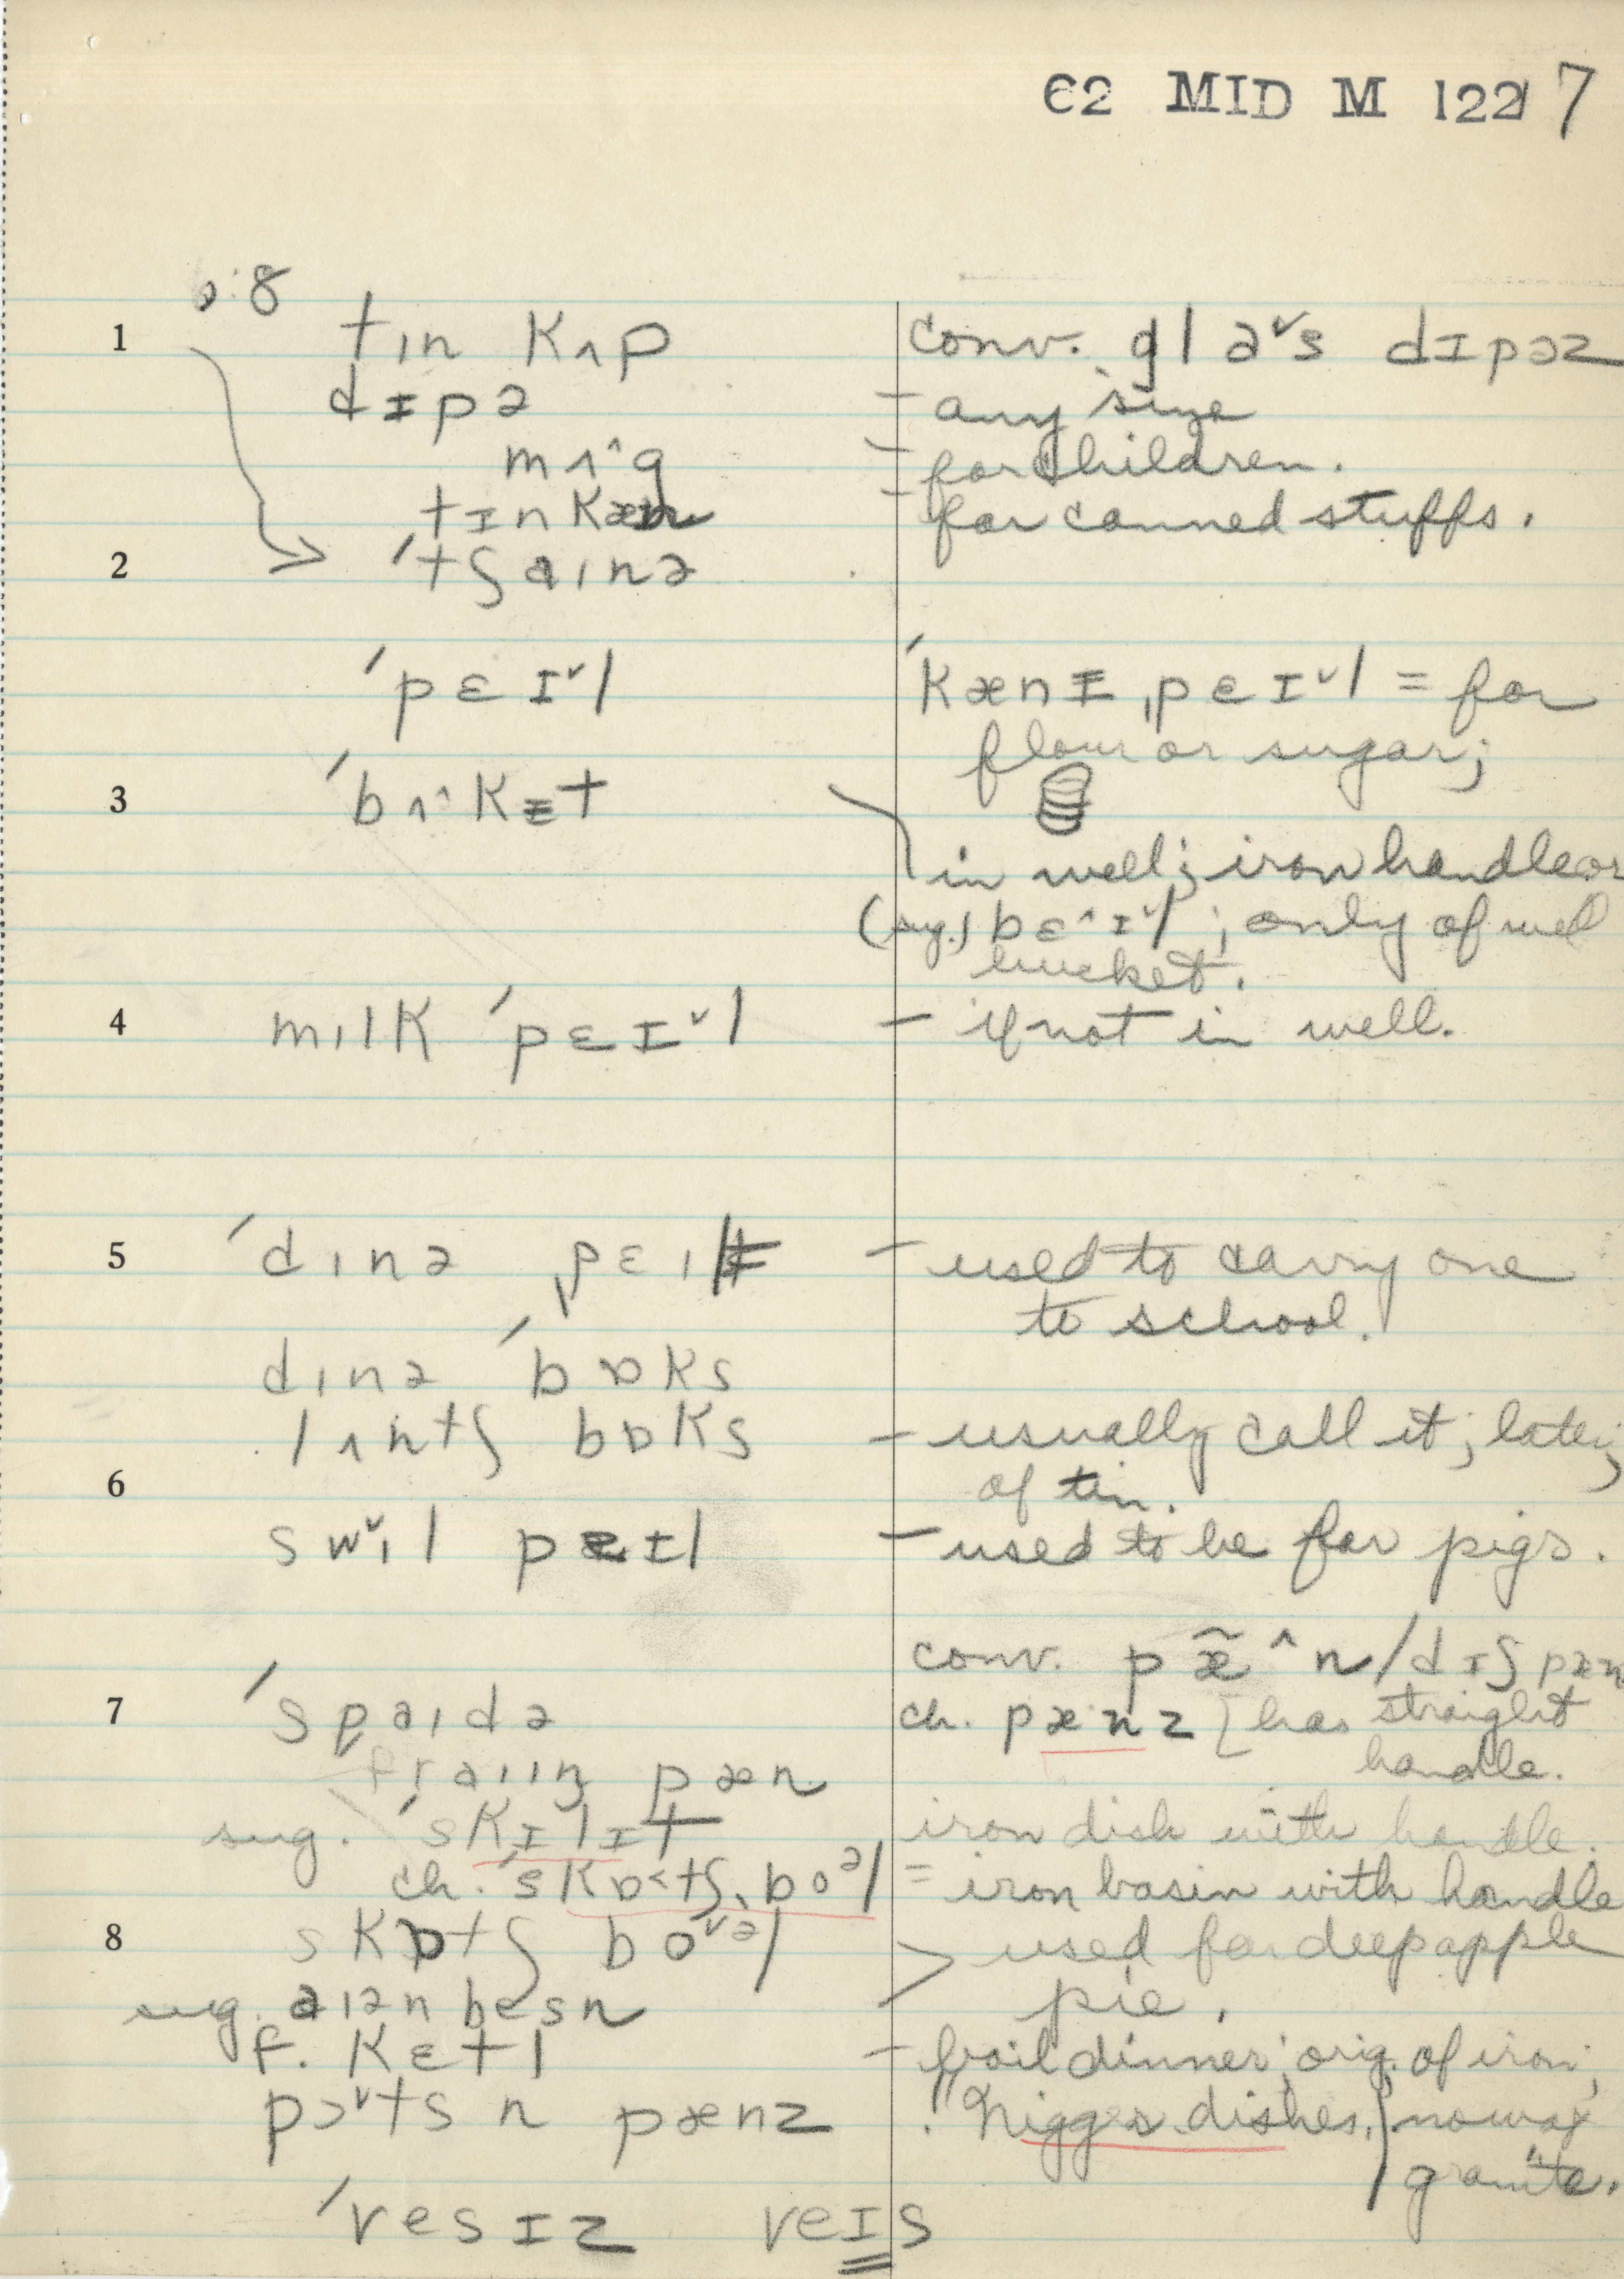 C2 MID M 122 7
:8
1 tɪn Kʌp conv. gl aˇs dɪpəz
dɪpə – any size
mʌˆg – for children.
tɪnKæn – for canned stuffs.
2 ˈtʃaɪnə
ˈpɛɪˇl ˈKænɪˌpɛɪˇl = for
flour or sugar;
3 ˈbʌˆKɪt
in well; iron handle or
(sug.) bɛˆɪˇl; only of well
bucket.
4 mɪlK ˈpɛɪˇl – if not in well.
5 ˈdɪnə ˌpɛɪl – used to carry one
to school.
dɪnə ˈbɒKs
lʌntʃ bɒKs – usually call it; later,
6 of tin.
swˇɪl pɛɪl – used to be for pigs.
conv. pæ̃ˆn/dɪʃpæn
7 ˈspaɪdə ch. pænz [has straight
fraɪɪŋ pæn handle.
sug. ˈsKɪlɪt iron dish with handle.
ch. ˈsKɒ<tʃˌboᵊl = iron basin with handle
8 sKɒtʃ boˇᵊl > used for deep apple
sug. aɪən besn pie.
f. Kɛtl – boil dinner; orig. of iron;
pɔˇts n pænz ! "Nigger dishes,) now gray
granite."
ˈvesɪz veɪs